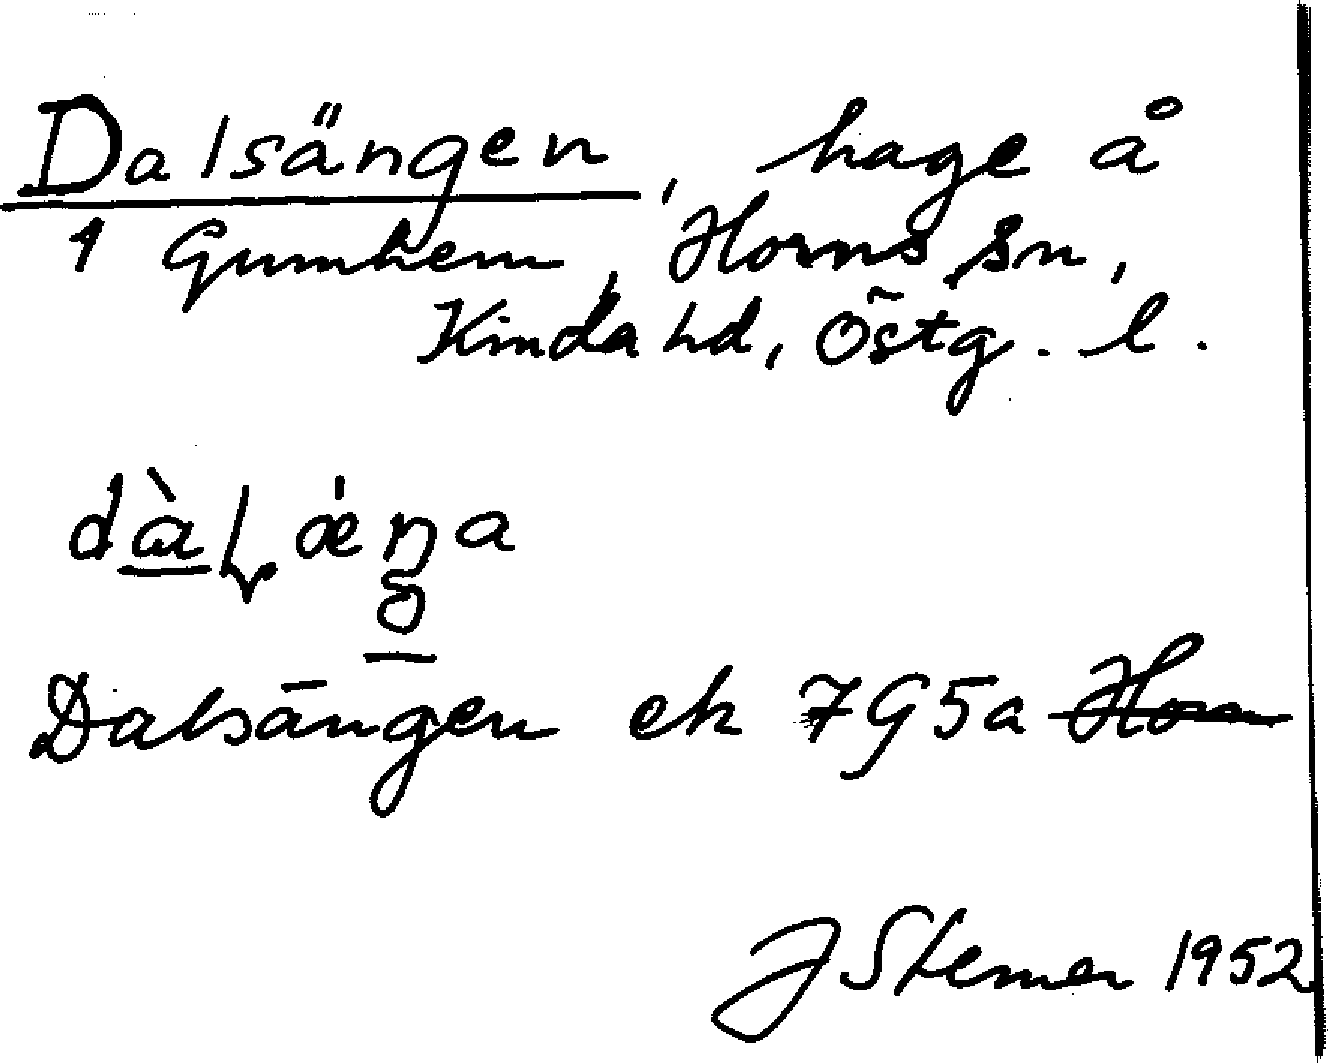 Dalsängen, hage å
1 Gumhem, Horns sn,
Kinda hd, Östg. l.
Dalsängen ek 7G5a Horn
J Stemer 1952